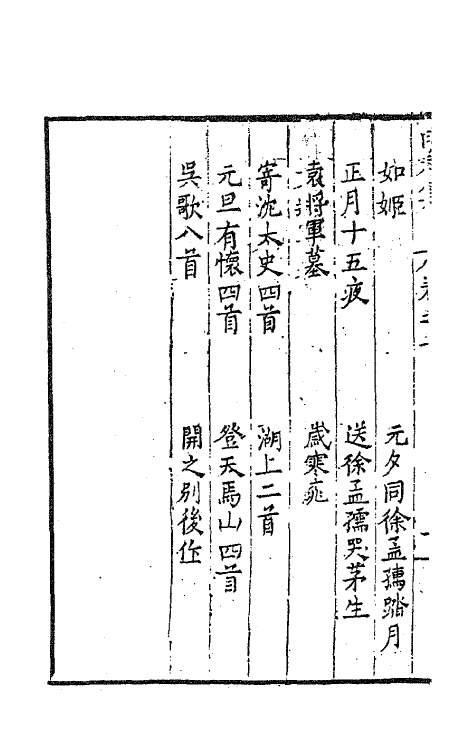 如姬　元夕同徐孟孺踏月
正月十五夜　送徐孟孺哭茅生
袁將軍墓　歲寒庵
寄沈太史四首　湖上二首
元旦有懷四首　登天馬山四首
吳歌八首　開之別後作